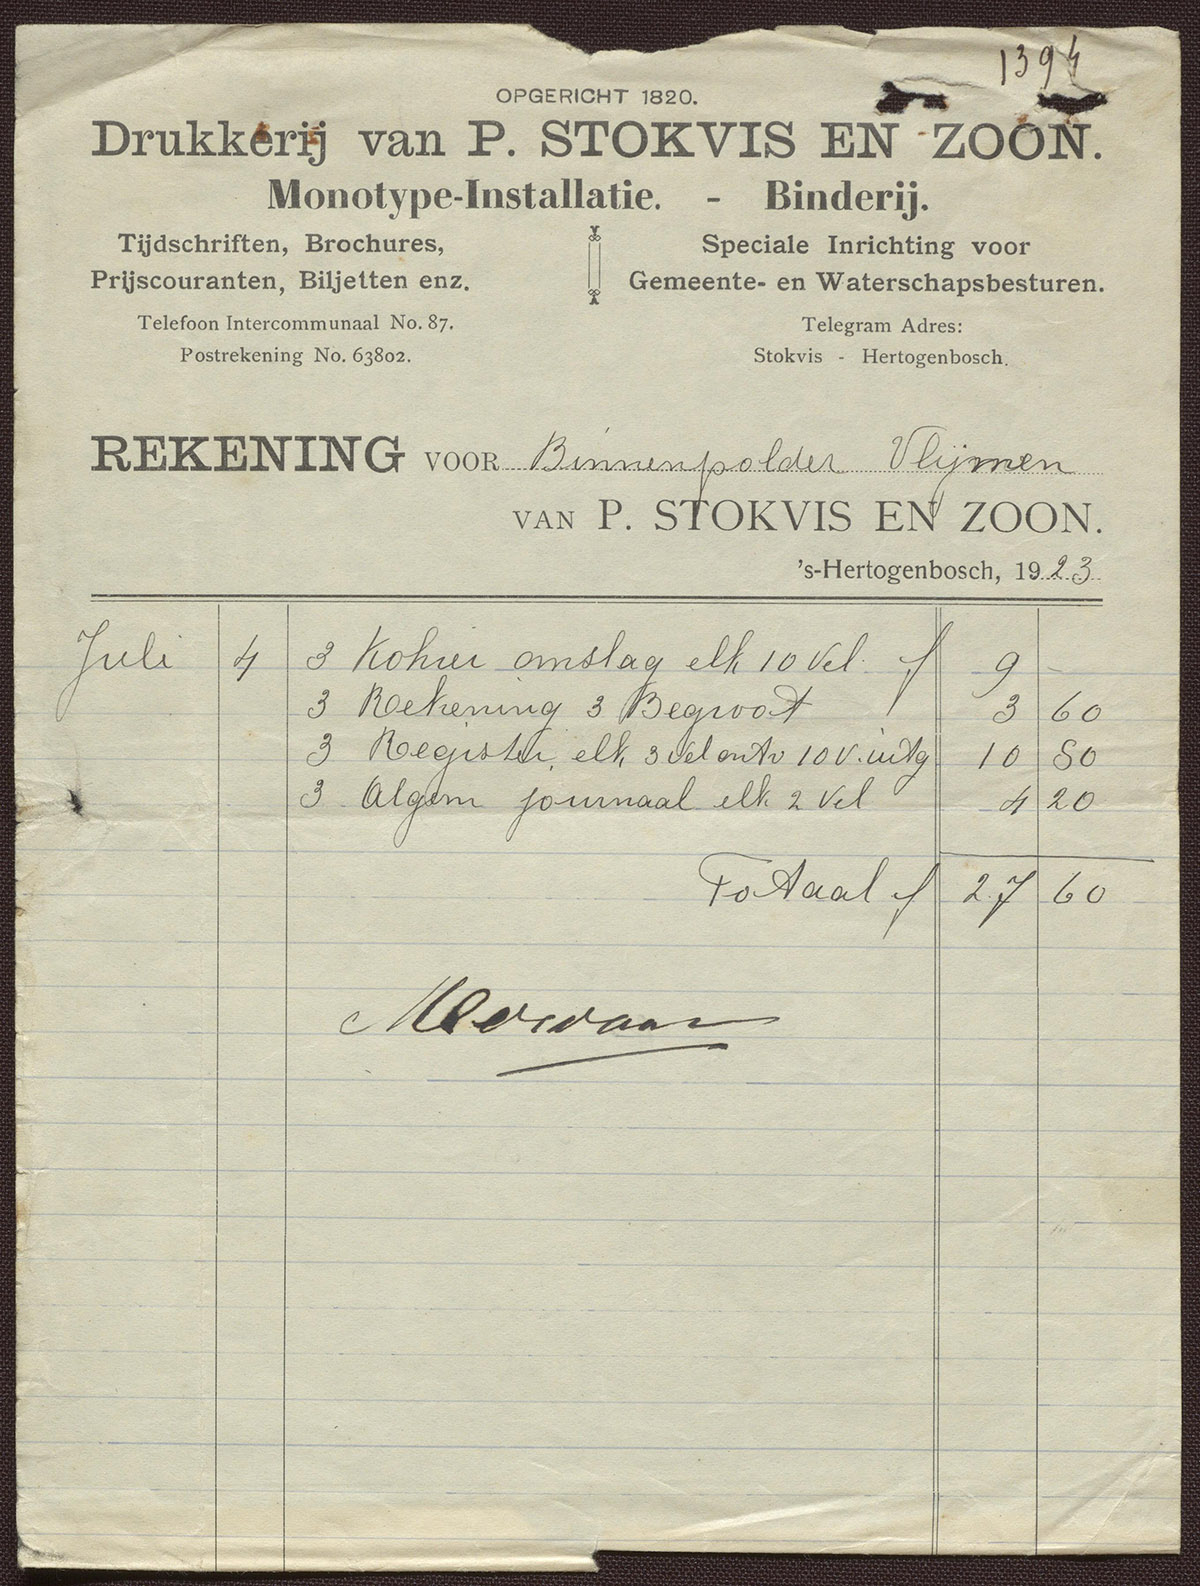 1394
OPGERICHT 1820.
Drukkerij van P. STOKVIS EN ZOON.
Monotype-Installatie. - Binderij.
Tijdschriften, Brochures,
Prijscouranten, Biljetten enz.
Telefoon Intercommunaal No. 87.
Postrekening No. 63802.
Speciale Inrichting voor
Gemeente- en Waterschapsbesturen.
Telegram Adres:
Stokvis - Hertogenbosch.
REKENING VOOR Binnenpolder Vlijmen
VAN P. STOKVIS EN ZOON.
's-Hertogenbosch, 1923
Juli 4 3 Kohier omslag elk 10 vel. f 9 -
3 Rekening 3 Begroot 3 60
3 Register, elk 3 vel ontv 10 v. uitg 10 80
3 Algem journaal elk 2 vel 4 20
Totaal f 27 60